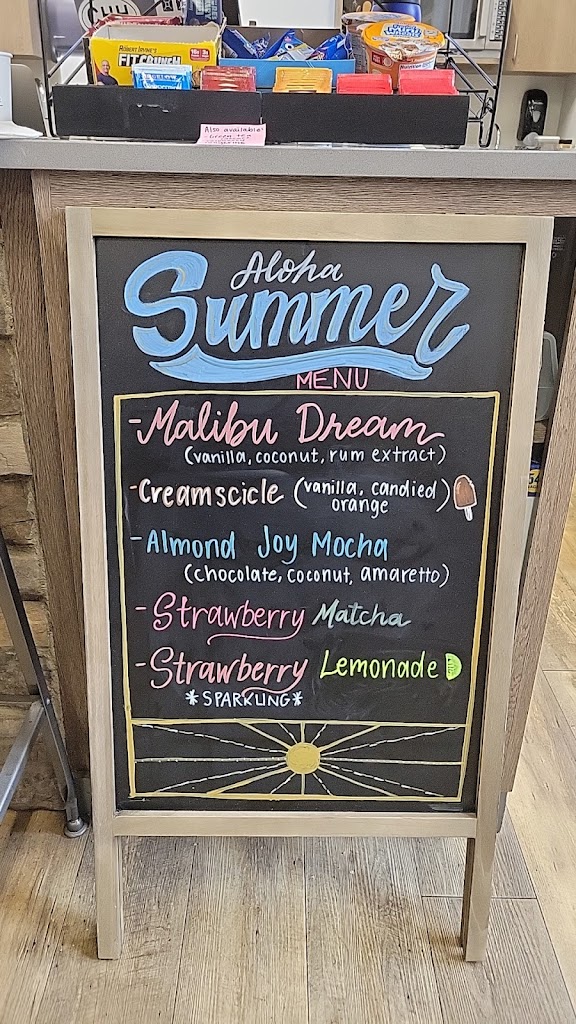 CHH
ROBERT IRVINE'S
FITCRUNCH
Also available!
Aloha
Summer
MENU
-Malibu Dream
(vanilla, coconut, rum extract)
-Creamscicle (vanilla, candied
orange)
-Almond Joy Mocha
(chocolate, coconut, amaretto)
-Strawberry Matcha
-Strawberry Lemonade
*SPARKLING*